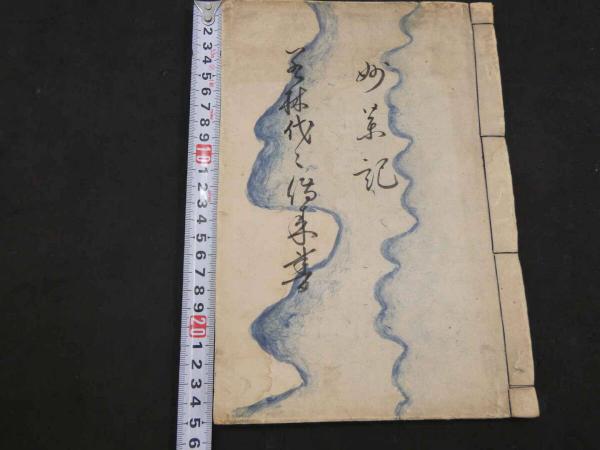 妙薬記
若林代々借来書
2 3 4 5 6 7 8 9 10 1 2 3 4 5 6 7 8 9 20 1 2 3 4 5 6